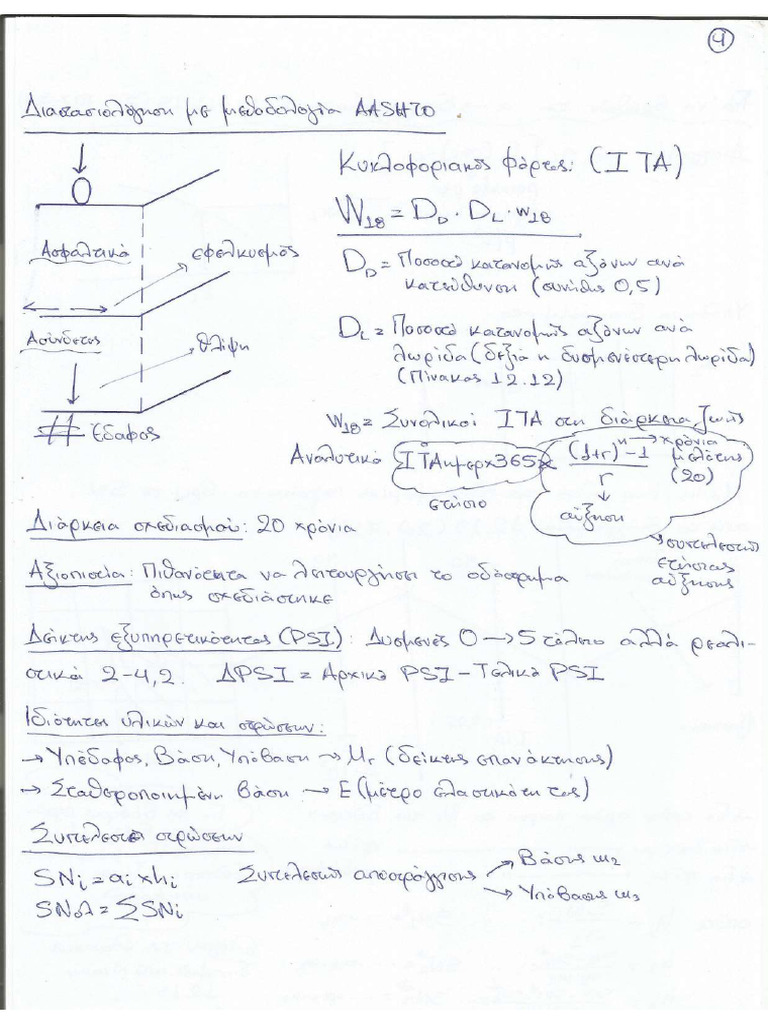 4
Διαστασιολόγηση με μεθοδολογία AASHTO
Κυκλοφοριακός φόρτος: (ΙΤΑ)
W18 = DD · DL · w18
Ασφαλτικά
εφελκυσμός
DD = Ποσοστό κατανομής αξόνων ανά
κατεύθυνση (συνήθως 0,5)
Ασύνδετες
θλίψη
DL = Ποσοστό κατανομής αξόνων ανά
λωρίδα (δεξιά η δυσμενέστερη λωρίδα)
(Πίνακας 12.12)
Έδαφος
w18 = Συνολικοί ΙΤΑ στη διάρκεια ζωής
Αναλυτικά ΣΙΤΑημερ x 365 x (1+r)^n - 1 / r
χρόνια
μελέτης
(20)
ετήσιο
αύξηση
συντελεστής
ετήσιας
αύξησης
Διάρκεια σχεδιασμού: 20 χρόνια
Αξιοπιστία: Πιθανότητα να λειτουργήσει το οδόστρωμα
όπως σχεδιάστηκε
Δείκτης εξυπηρετικότητας (PSI): Δυσμενές 0 → 5 τέλειο αλλά ρεαλι-
στικά 2-4,2. ΔPSI = Αρχικό PSI - Τελικό PSI
Ιδιότητες υλικών και στρώσεων:
→ Υπέδαφος, Βάση, Υπόβαση → Mr (δείκτης επανάκτησης)
→ Σταθεροποιημένη βάση → E (μέτρο ελαστικότητας)
Συντελεστές στρώσεων
SNi = ai x hi Συντελεστής αποστράγγισης → Βάσης m2
→ Υπόβασης m3
SNολ = ΣSNi